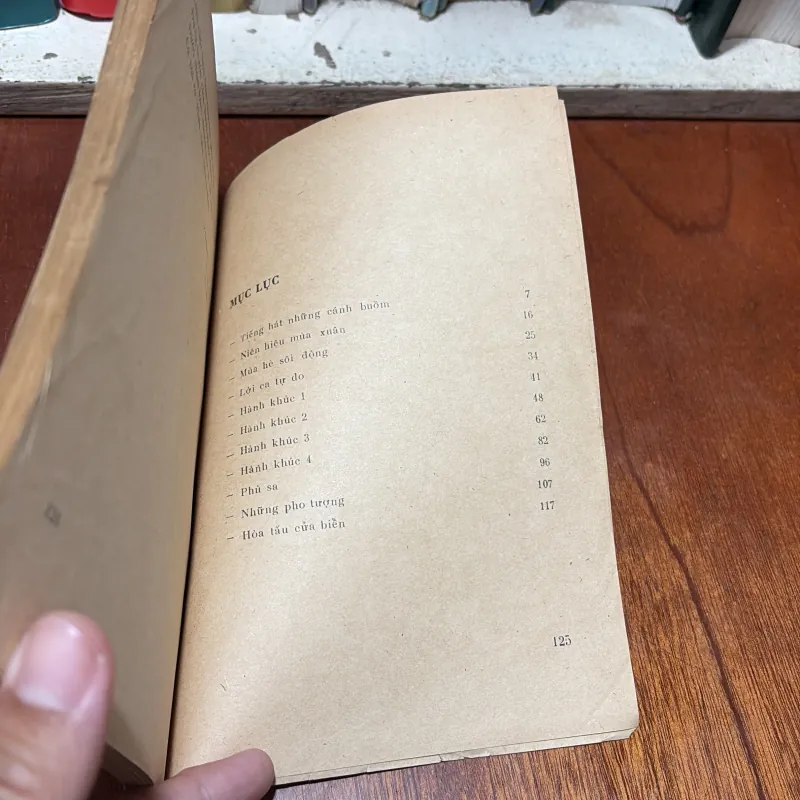 MỤC LỤC
— Tiếng hát những cánh buồm 7
— Niên hiệu mùa xuân 16
— Mùa hè sôi động 25
— Lời ca tự do 34
— Hành khúc 1 41
— Hành khúc 2 48
— Hành khúc 3 62
— Hành khúc 4 82
— Phù sa 96
— Những pho tượng 107
— Hòa tấu cửa biển 117
125